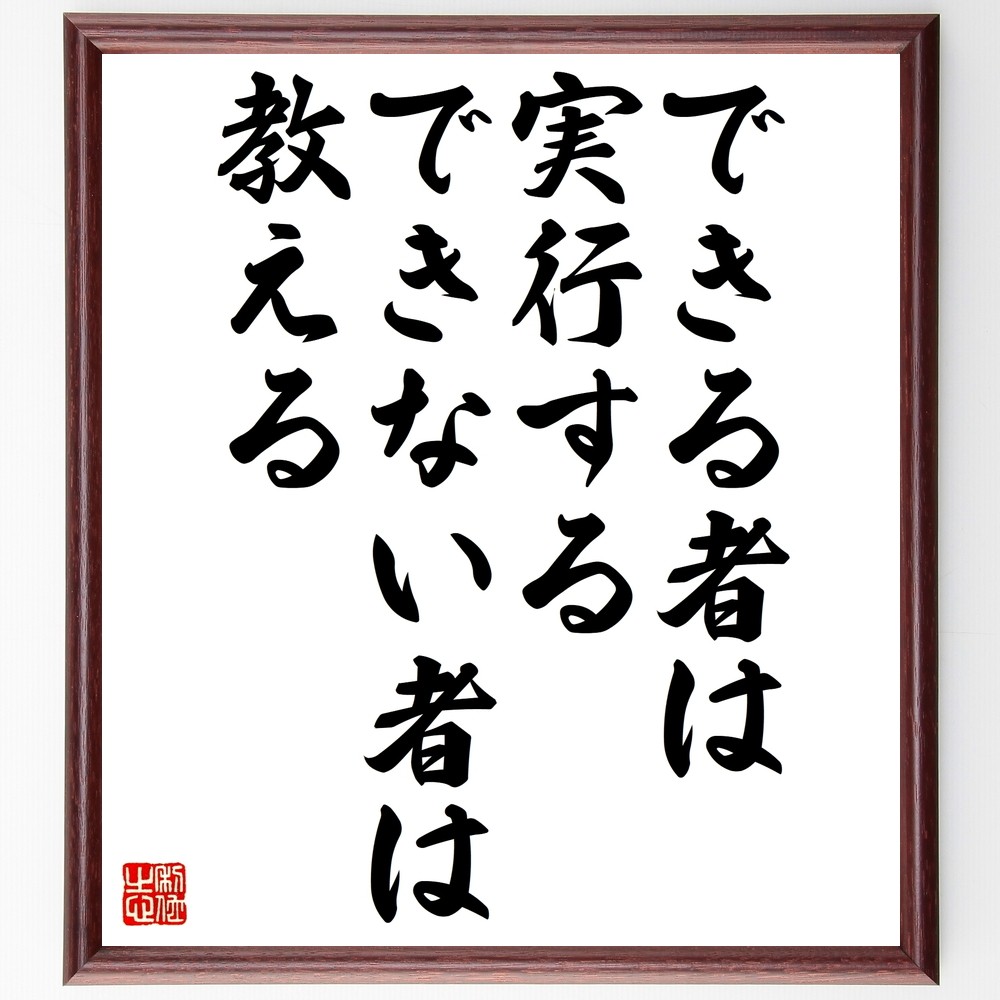 できる者は
実行する
できない者は
教える